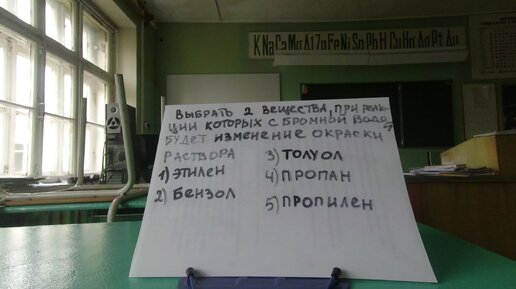 K Na Ca Mg Al Zn Fe Ni Sn Pb H Cu Hg Ag Pt Au
ВЫБРАТЬ 2 ВЕЩЕСТВА, ПРИ РЕАК-
ЦИИ КОТОРЫХ С БРОМНОЙ ВОДОЙ
БУДЕТ ИЗМЕНЕНИЕ ОКРАСКИ
РАСТВОРА
1) ЭТИЛЕН
2) БЕНЗОЛ
3) ТОЛУОЛ
4) ПРОПАН
5) ПРОПИЛЕН